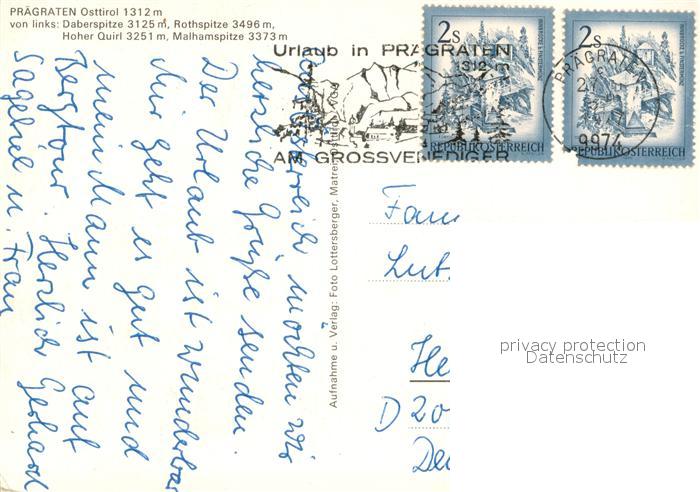 PRÄGRATEN Osttirol 1312 m
von links: Daberspitze 3125 m, Rothspitze 3496 m,
Hoher Quirl 3251 m, Malhamspitze 3373 m
Urlaub in PRÄGRATEN
1312 m
AM GROSSVENEDIGER
2s
REPUBLIK ÖSTERREICH
2s
REPUBLIK ÖSTERREICH
PRÄGRATEN
9974
Österreich möchten wir
herzliche Grüße senden.
Der Urlaub ist wunderbar
Mir geht es gut und
mein Mann ist auf
Bergtour. Herzlich Gerhard
Sagebiel u. Frau
Aufnahme u. Verlag: Foto Lottersberger, Matrei, Osttirol
Fam
Lut
He
D 20
De
privacy protection
Datenschutz